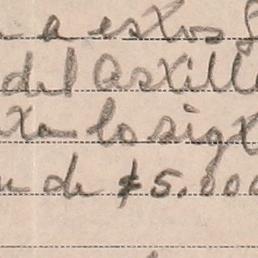 a estos
del Astille
lo sig
de $5.000